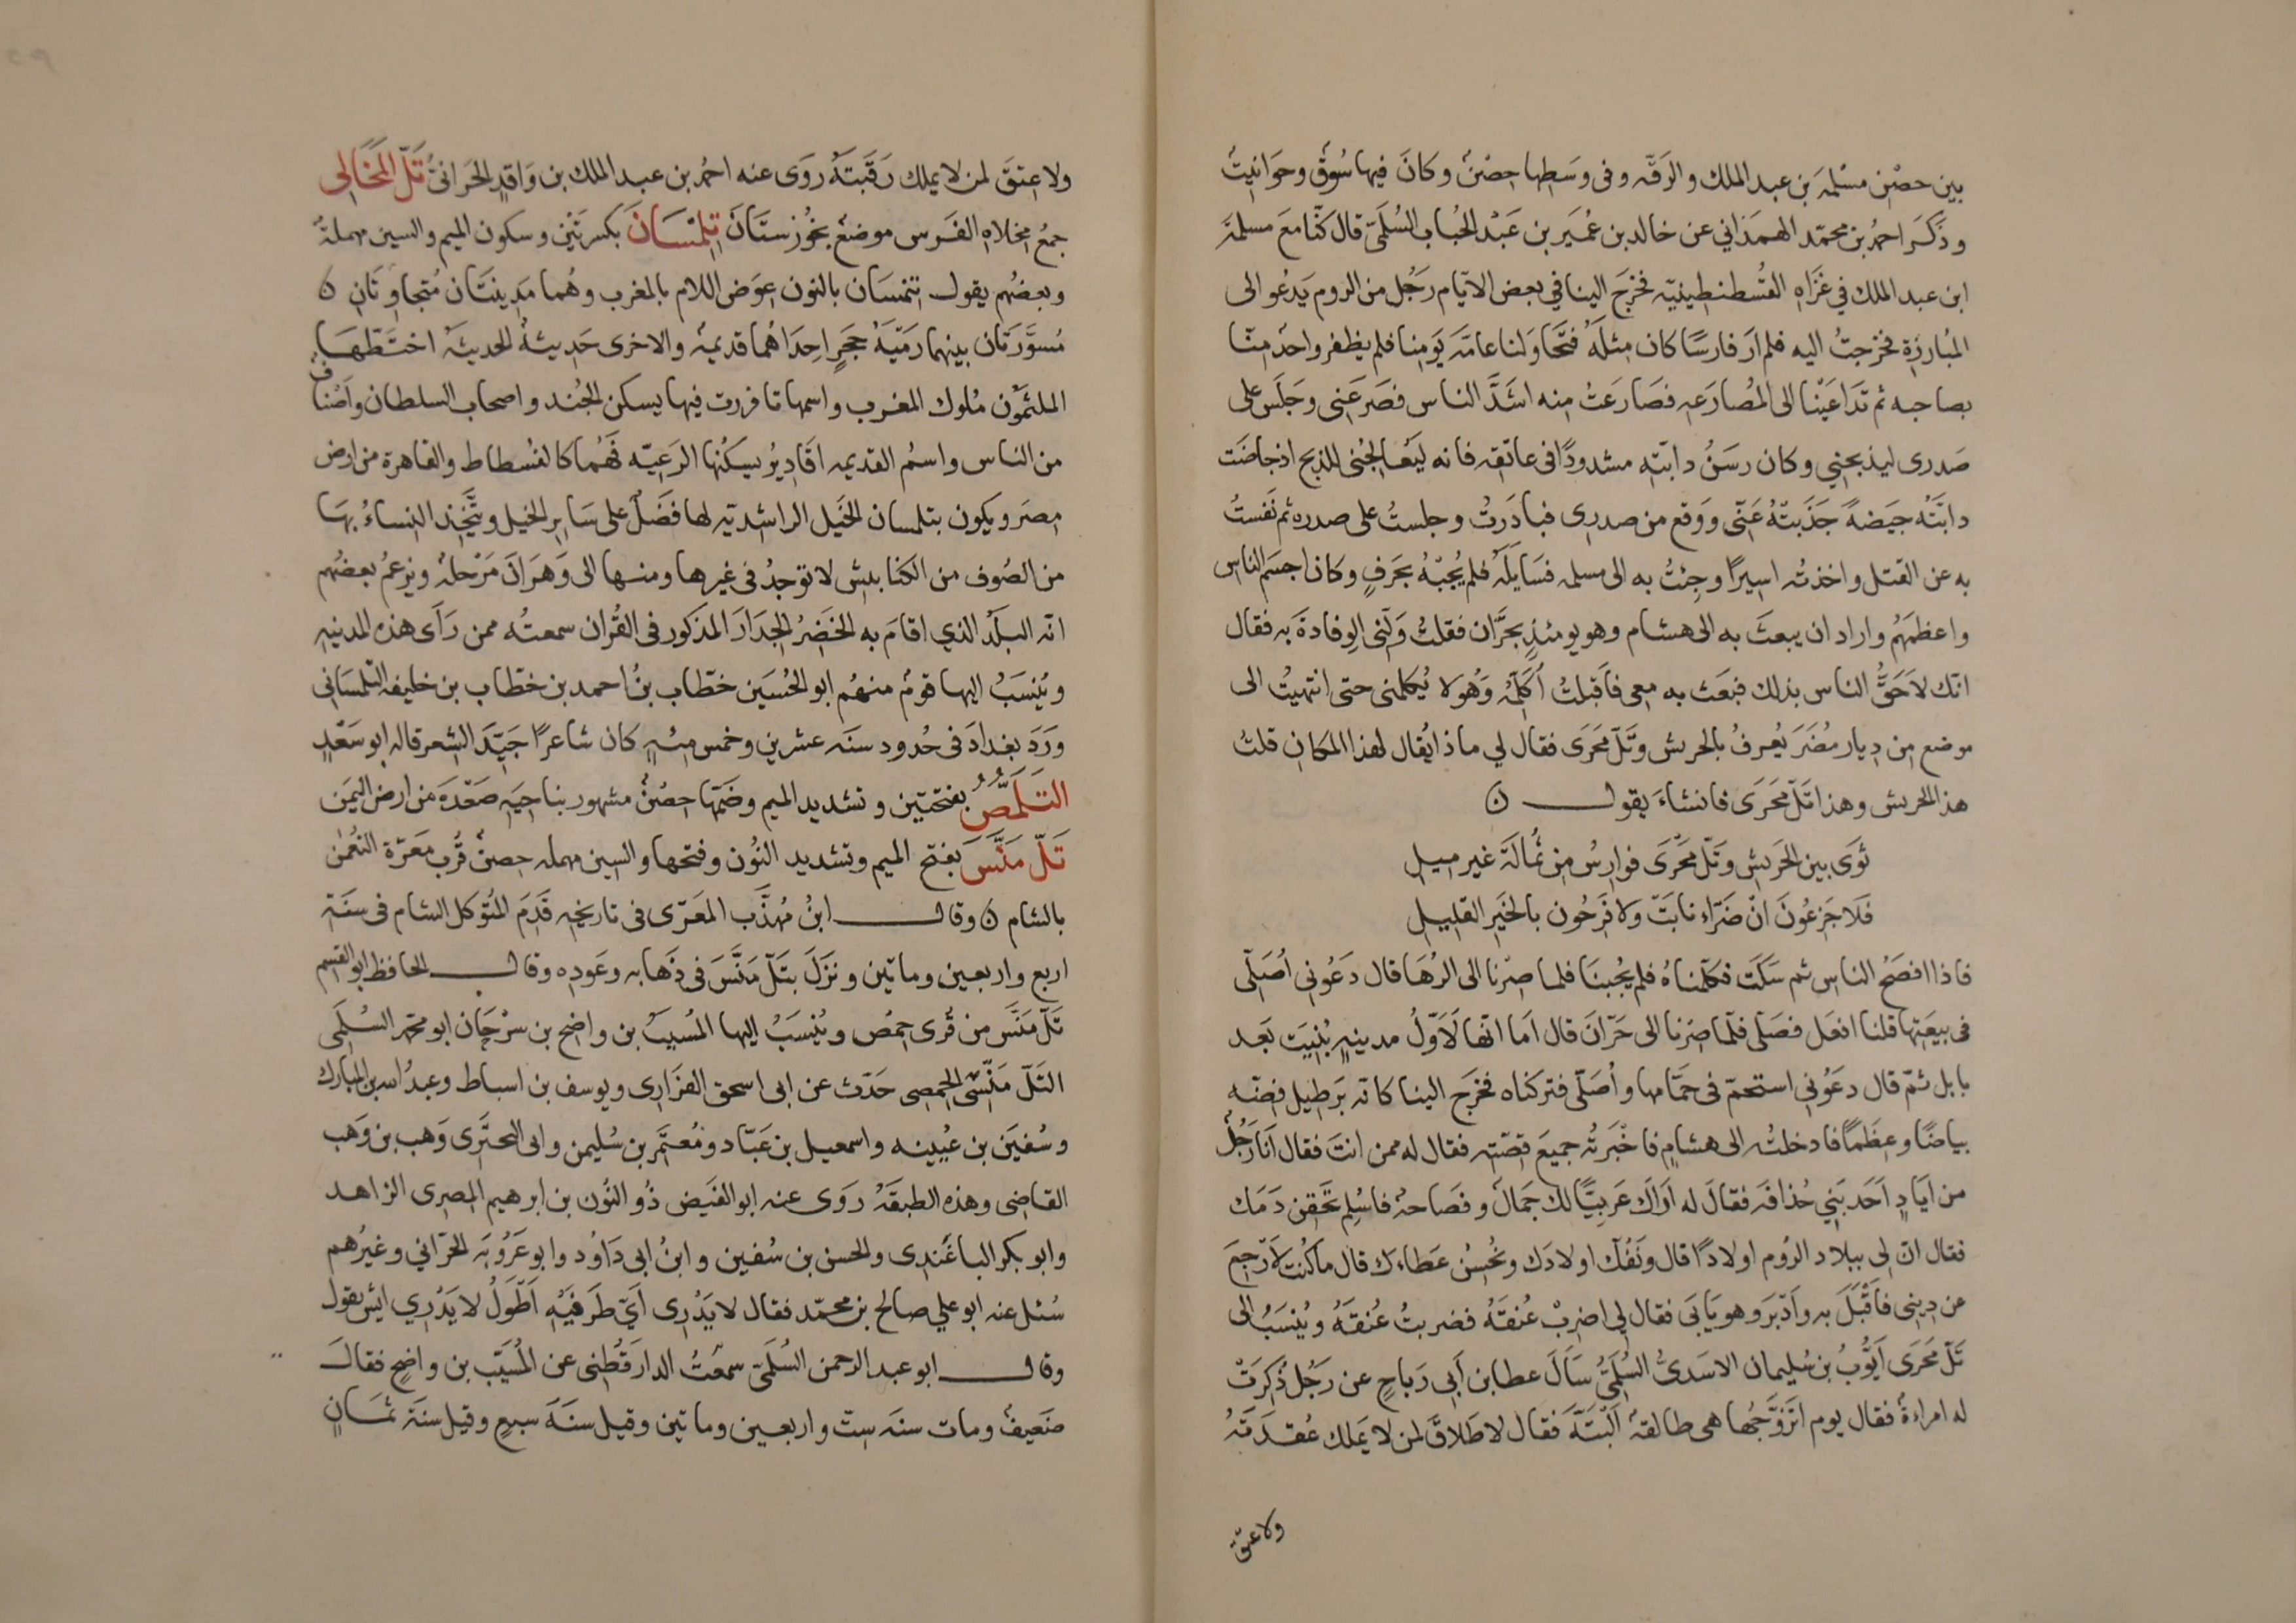 بين حصْن مسْلمة بن عبد الملك والرَقّه وفى وسَطها حِصْنٌ وكانَ فيها سُوقٌ وحَوَانيتُ
وذَكَرَ احمدُ بن محمّد الهمَذاني عن خالد بن عُمَير بن عَبْد الحُباب السُلَمىّ قال كنّا مَعَ مسلمَة
ابن عبد الملك في غَزَاهِ القُسطنطينيّه فخرَجَ الينا في بعض الايّام رَجُل من الروم يَدعُو الى
المُبارزةِ فخرجتُ اليه فلم ارَ فارسًا كان مِثلَهُ فتجَاوَلنا عامّةَ يَومِنا فلم يظفر واحدٌ منّا
بصاحبه ثم تدَاعَيْنا الى المُصارَعَه فصَارعَتُ منه اشَدَّ الناس فصَرعَنِى وجَلَس على
صَدرى ليذبحنِي وكان رسَنُ دابّتِه مشدودًا فى عاتقه فانه ليُعَالجُنى للذبح اذ جاضَت
دابّتُه جَيضةً جَذَبتهُ عَنّى ووَقع من صدرى فبادَرتُ وجلستُ على صدره ثم نفستُ
به عن القتل واخذته اسيرًا وجِئتُ به الى مسلمه فسَايلَهُ فلم يُجبْهُ بحَرفٍ وكان اجسَم الناس
واعظمَهُم واراد ان يبعثَ به الى هشام وهو يومئذٍ بحرَّان فقلتُ وَلّنى الوفادةَ به فقال
انّك لاحَقُّ الناس بذلك فبعَث به معى فاَقبلتُ اُكَلّمُه وَهُو لا يُكلمنى حتى انتهيتُ الى
موضع من دِيار مُضَرَ يُعرفُ بالحريش وتَلّ مَحرَى فقال لي ماذا يُقال لهذا المكان قلتُ
هذا الحريش وهذا تلّ مَحرَى فانشاءَ يقول ن
ثوَى بين الحَريش وتَلّ مَحْرَى فوارسُ من نُمَالَة غير ميل
فلا جَزِعُونَ انّ ضَرّاء نابَتّ ولا فَرِحُون بالخَير القليل
فاذا افصَحُ الناس ثم سَكَت فكلّمناهُ فلم يُجُبنَا فلما صِرْنا الى الرُهَا قال دَعُونى اُصَلّى
فى بيعَتِها قلنا افعَل فصَلّى فلّما صِرنا الى حَرّانَ قال اَما انّها لاَوّلُ مدينهٍ بُنيَت بَعد
بابل ثمّ قال دعَوُني استحمّ فى حَمّامها واُصَلّى فتركناه فخرَج الينا كانّه بَرطيل فِضّه
بياضًا وعِظَمًا فادخلتُه الى هشامٍ فاخْبَرتُه جميعَ قصّته فقال له ممن انتَ فقال اَنَا رَجُلٌ
من اَيَادٍ اَحَد بَنِي حُذافَه فقالَ له اَرَاكَ عَرَبِيًّا لك جَمَالٌ وفَصَاحةٌ فاسْلم تحقِن دَمَك
فقال انّ لى ببلاد الرُوم اولادًا قال ونَفُكّ اولادَك ونُحسِنُ عَطاءك قال ما كُنت لاَرْجعَ
عن ديِنى فاَقْبَلَ به واَدْبَرَ وهو يَابَى فقال لي اضربْ عُنقَهُ فضربتُ عُنقهُ ويُنسَبُ الى
تلّ مَحرَى اَيّوُبُ بن سُليمان الاسَدىُّ السُلَمِىُّ سَاَلَ عطا بن أبى رَباحٍ عن رَجُل ذُكِرَتْ
له امراءةٌ فقال يوم اتزَوّجُها هى طالقةٌ اَلبَتّة فقال لا طَلاقَ لمن لا يَملك عُقدَتَهُ
ولا عتق
ولا عِتقَ لمن لا يملك رَقَبَتَهُ روَى عنه احمدُ بن عبد الملك بن وَاقدٍ الحَرانىُّ تَلّ المَخَالِى
جمعُ مخلاهِ الفَرس موضعٌ بخُوزستَانَ تِلِمْسَانَ بكسرتين وسكون الميم والسين مهملةٌ
وبعضُهم يقول تنمسَان بالنون عوَض اللام بالمغرب وهُما مَدِينتَان مُتجاوِنَانِ ن
مُسَوَّرَتان بينهما رَميَةُ حَجرٍ اِحدَاهُما قديمةٌ والاخرى حَديثةٌ الحديثَهُ اختَطّهَا
الملثمّون مُلوك المغرب واسمها تافررت فيها يسكن الجُند واصحاب السلطان واَصْنافٌ
من الناس واسمُ القديمه اقَادِيرُ يسكنُها الرَعيّه فهُما كالفُسطاط والقاهرة من ارض
مِصرَ ويكون بتلمسان الخَيل الراشديّه لها فضَلٌ على سَايرِ الخيل ويتّخِذ النِساءُ بهَا
من الصُوف من الكنابيش لا توجدُ فى غيرها ومنها الى وَهرَانَ مَرْحلةٌ ويَزعمُ بعضهُم
انّه البلَدُ الذي اقامَ به الخَضِرُ الجِدَارَ المذكور فى القُران سمعتُه ممن رَاَى هذه المدينه
ويُنسَبُ اليها قومٌ منهُم ابو الحُسَين خطّاب بنُ احمد بن خطّاب بن خليفه التلمسَانى
ورَدَ بغدادَ فى حُدود سنَه عشرين وخمس مئهٍ كان شاعرًا جَيّدَ الشِعر قاله ابو سَعْدٍ
التَلَمُّصُ بفتحتين وتشديد الميم وضمّها حِصْنٌ مشهور بناحِيَه صَعْدَة من ارض اليمَن
تَلّ مَنَّسَ بفتح الميم وتشديد النُون وفتحها والسين مهمله حصنٌ قُرب معَرّة النُعمٰن
بالشام ن وقال ابنُ مُهذَّب المعَرّى فى تاريخه قَدِمَ المتُوكل الشام فى سنَة
اربع واربعين وماتين ونزَلَ بتَلّ مَنّسَ فى ذَهابه وعَودِه وقال الحافظ ابو القسم
تَلّ مَنَّس من قُرى حِمْص ويُنسَبُ اليها المُسيبُ بن واضح بن سرْحَان ابو محمد السُلَمى
التَلّ مَنّسّى الحِمصى حَدّث عن ابى اسحق الفزَارى ويوسف بن اسباط وعبدُ الله بن المبارك
وسُفين بن عُيينه واسمعيل بن عَبّاد ومُعتَمَر بن سُليمن وابى البحتَرى وَهب بن وَهب
القاضى وهذه الطبقَهُ روَى عنه ابو الفَيض ذُو النُون بن ابرهيم المصرى الزاهد
وابو بكر الباغَندِى والحسن بن سُفين وابنُ ابى دَاوُد وابو عَرُوبَه الحَرّاني وغيرُهم
سُئل عنه ابو علي صالح بن محمّد فقال لا يَدْرِى اَيّ طَرفَيْهِ اَطْوَلُ لا يَدْرِي ايش يقول
وقال ابو عبد الرحمن السُلَمىّ سمعْتُ الدارقُطنِى عن المُسَيّب بن واضحٍ فقالَ
ضَعيفٌ ومات سنَه سِتّ واربعين وماتين وقيل سنَةَ سبعٍ وقيل سنَة ثمَانٍ